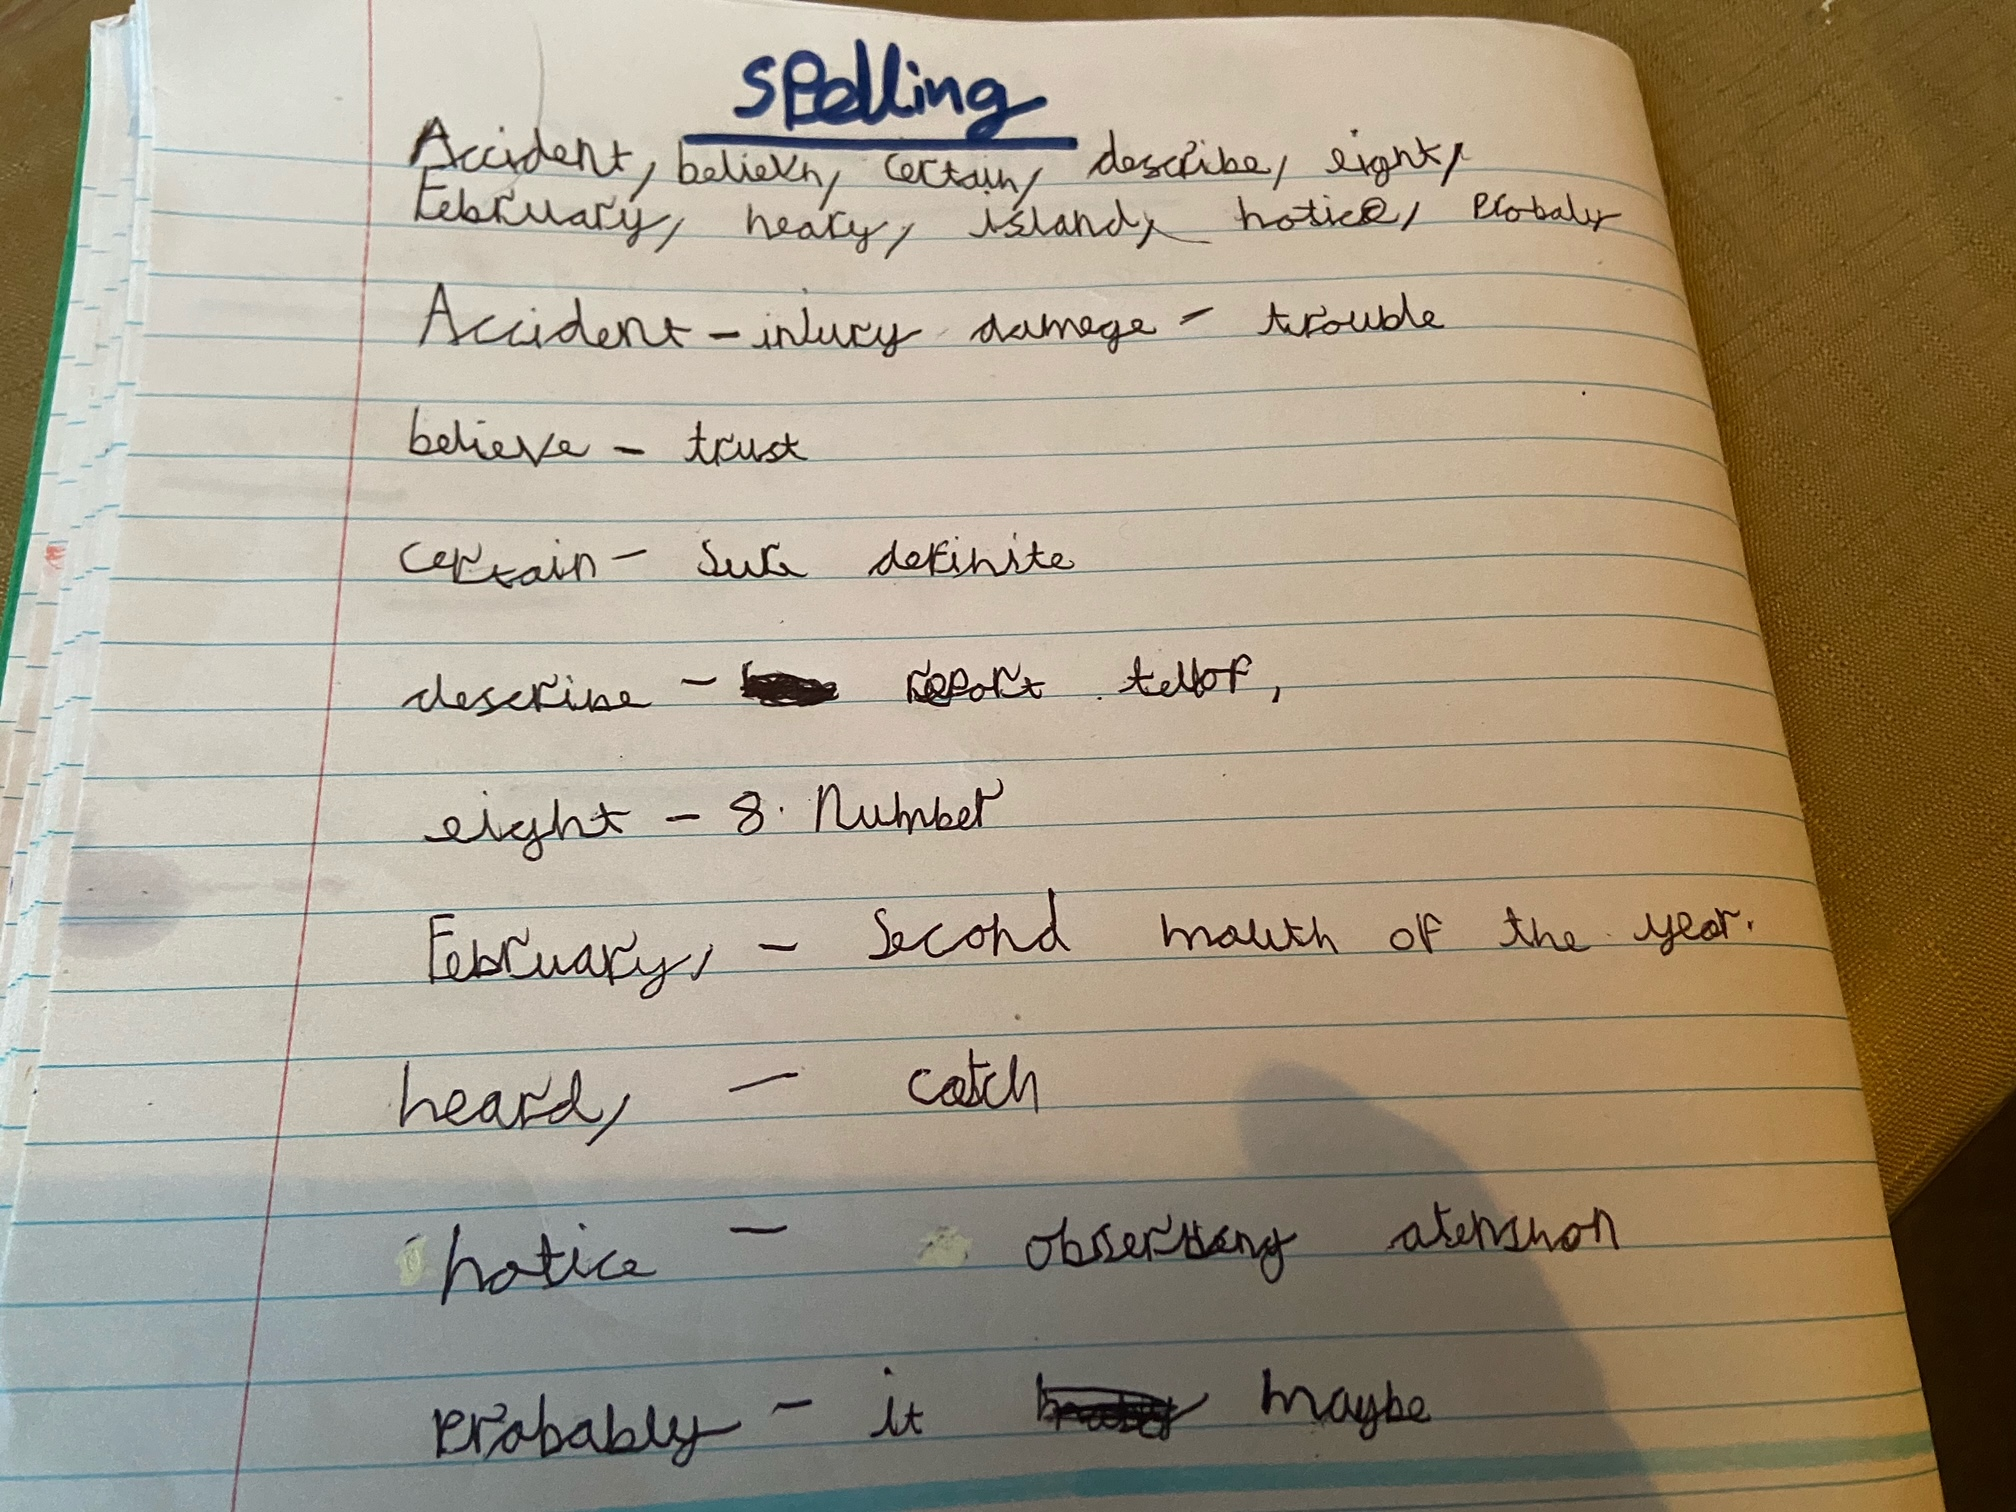 spelling
Accident, believn, certain, describe, eight,
February, heary, island, notice, Probaly
Accident - injury damege - trouble
believe - trust
certain - Sure definite
describe - report tellof,
eight - 8. Number
February, - Second mouth of the year.
heard, - catch
notice - atension
Probably - it maybe